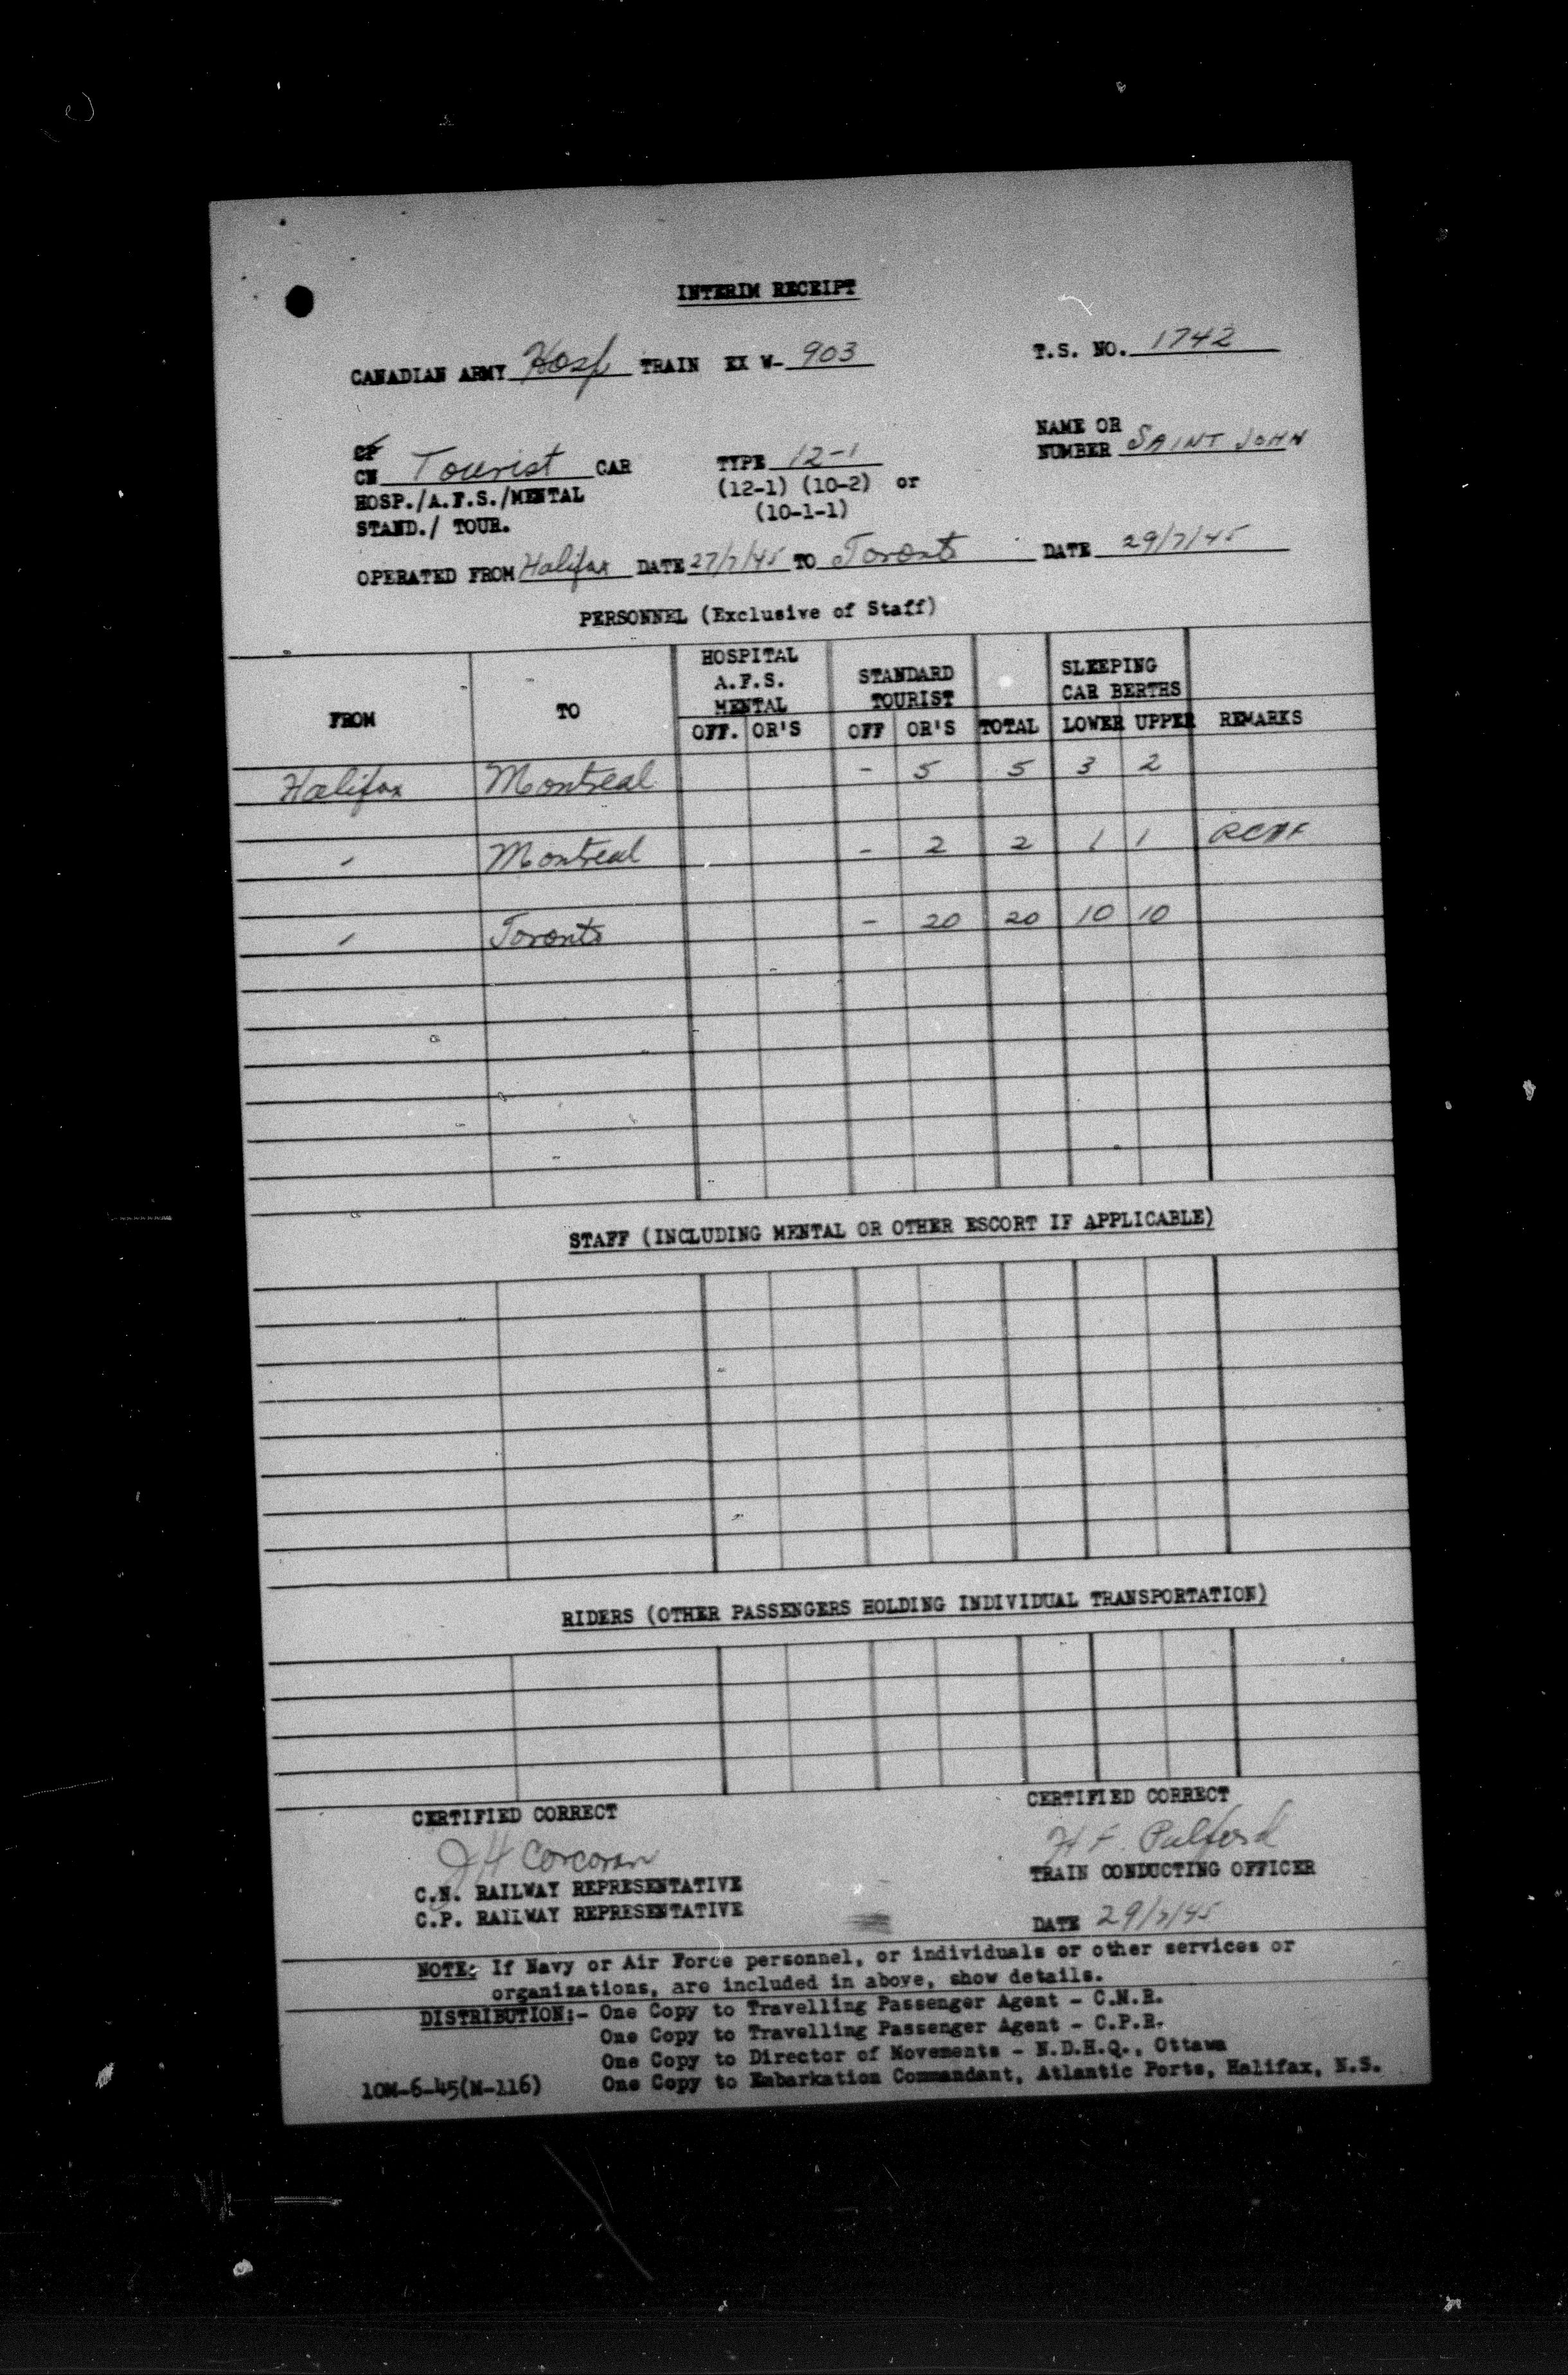 INTERIM RECEIPT
CANADIAN ARMY Hosp TRAIN EX W- 903 T.S. NO. 1742
CP
CN Tourist CAR TYPE 12-1 NAME OR NUMBER SAINT JOHN
HOSP./A.F.S./MENTAL (12-1) (10-2) or
STAND./ TOUR. (10-1-1)
OPERATED FROM Halifax DATE 27/7/45 TO Toronto DATE 29/7/45
PERSONNEL (Exclusive of Staff)
FROM TO HOSPITAL A.F.S. MENTAL STANDARD TOURIST TOTAL SLEEPING CAR BERTHS REMARKS
OFF. OR'S OFF OR'S LOWER UPPER
Halifax Montreal - 5 5 3 2
" Montreal - 2 2 1 1
" Toronto - 20 20 10 10
STAFF (INCLUDING MENTAL OR OTHER ESCORT IF APPLICABLE)
RIDERS (OTHER PASSENGERS HOLDING INDIVIDUAL TRANSPORTATION)
CERTIFIED CORRECT CERTIFIED CORRECT
JH Corcoran H F. Pulford
C.N. RAILWAY REPRESENTATIVE TRAIN CONDUCTING OFFICER
C.P. RAILWAY REPRESENTATIVE DATE 29/7/45
NOTE: If Navy or Air Force personnel, or individuals or other services or
organizations, are included in above, show details.
DISTRIBUTION:- One Copy to Travelling Passenger Agent - C.N.R.
One Copy to Travelling Passenger Agent - C.P.R.
One Copy to Director of Movements - N.D.H.Q., Ottawa
10M-6-45(M-116) One Copy to Embarkation Commandant, Atlantic Ports, Halifax, N.S.